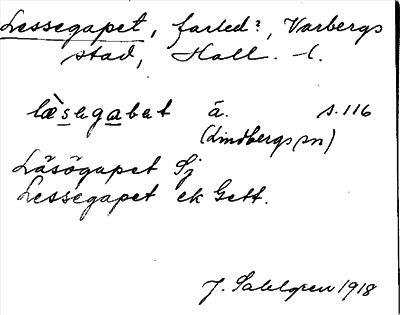 Lessegapet, farled?, Varbergs
stad, Hall. l.
læ̀sagabat ä. s. 116
(Lindbergs sn)
Läsögapet Sj
Lessegapet ek Gett.
J. Sahlgren 1918